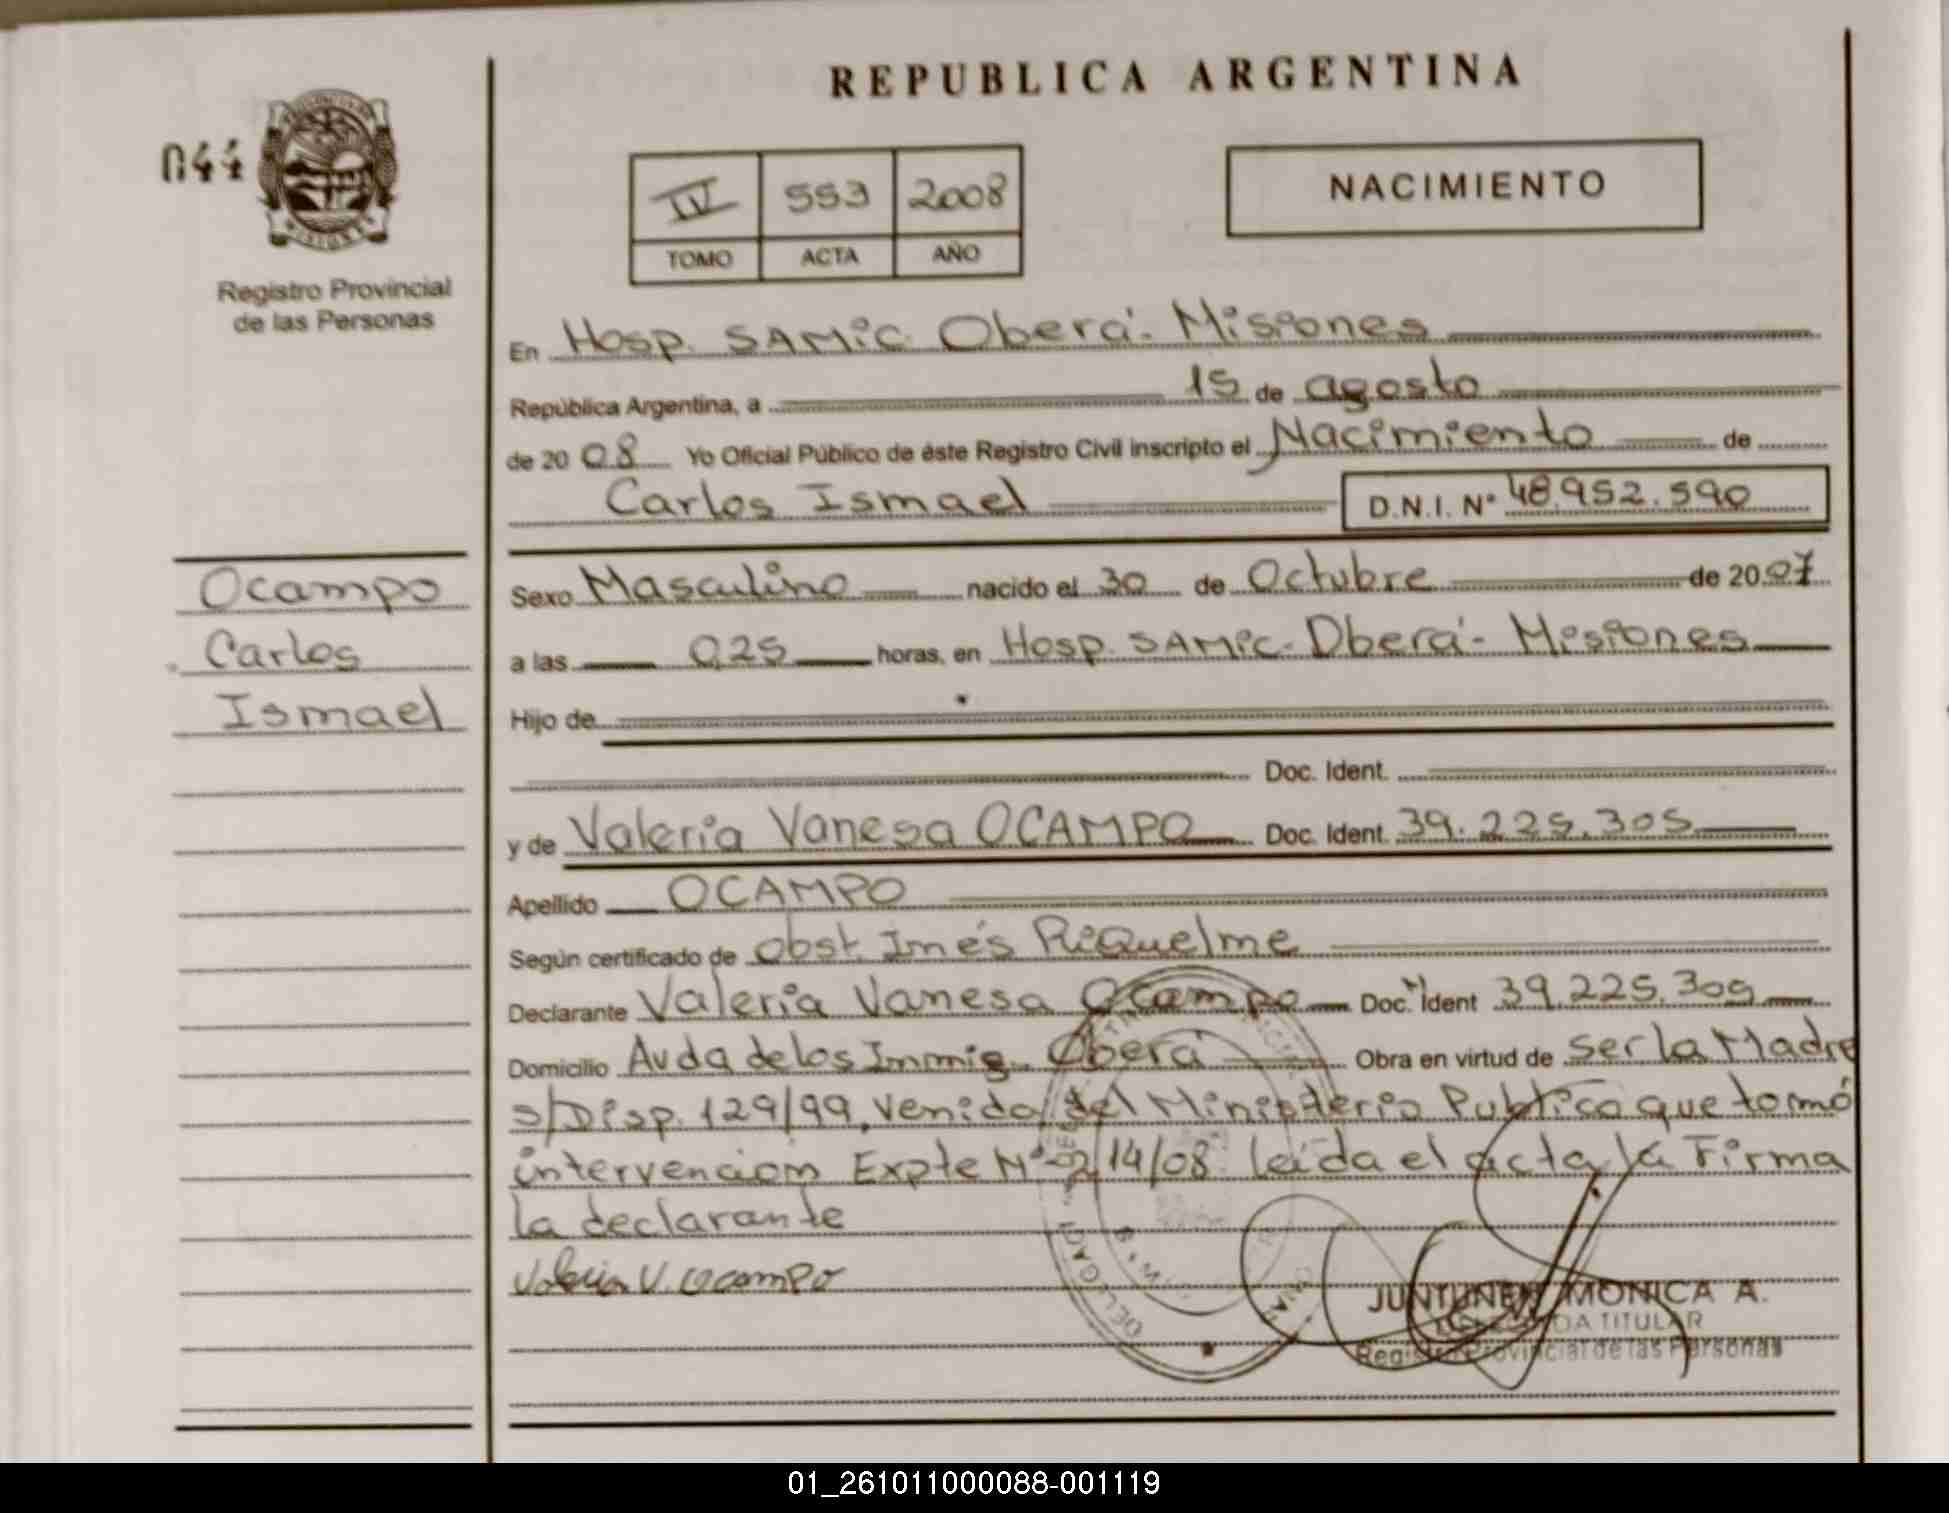 REPUBLICA ARGENTINA
044
IV 553 2008
TOMO ACTA AÑO
NACIMIENTO
Registro Provincial
de las Personas
En Hosp. SAMic. Oberá - Misiones
República Argentina, a 15 de agosto
de 2008 Yo Oficial Público de éste Registro Civil inscripto el Nacimiento de
Carlos Ismael D.N.I. N° 48.952.590
Ocampo
Carlos
Ismael
Sexo Masculino nacido el 30 de Octubre de 2007
a las 0,25 horas, en Hosp. SAMic - Oberá - Misiones
Hijo de
Doc. Ident.
y de Valeria Vanesa OCAMPO Doc. Ident. 39.225.305
Apellido OCAMPO
Según certificado de obst. Inés Riquelme
Declarante Valeria Vanesa Ocampo Doc. Ident 39.225.305
Domicilio Avda de los Inmig. Oberá Obra en virtud de ser la Madre
s/Disp. 129/99, venida del Ministerio Publico que tomó
intervencion Expte N° 214/08 leída el acta la Firma
la declarante
Valeria V. Ocampo
JUNTUNEN MONICA A.
DELEGADA TITULAR
Registro Provincial de las Personas
01_261011000088-001119